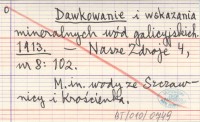 0
Dawkowanie i wskazania
mineralnych wód galicyjskich.
1913. – Nasze Zdroje 4,
nr 8: 102.
M.in. wody ze Szczaw-
nicy i Krościenka.
BT/010/0949